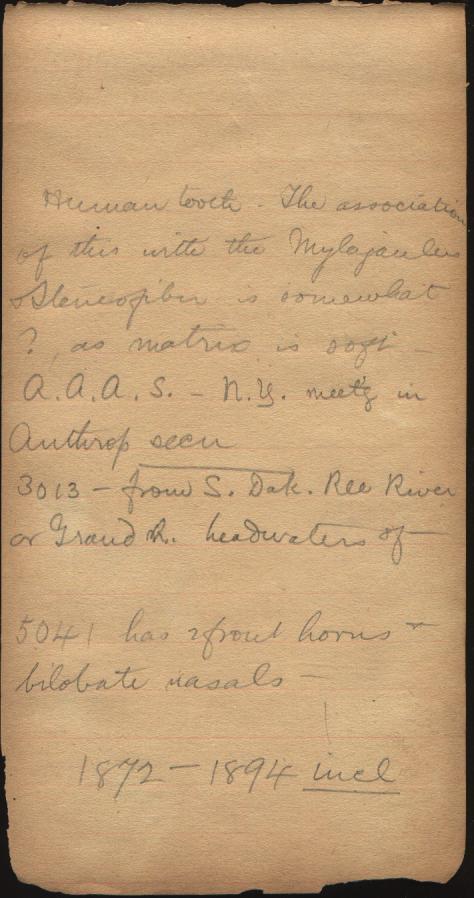 Human tooth - The association
of this with the Mylagaulus
& Steneofiber is somewhat
? , as matrix is soft -
A.A.A.S. - N.Y. meetg in
Anthrop secn
3013 - from S. Dak. Ree River
or Grand R. headwaters of -
5041 has 2 front horns &
bilobate nasals -
1872 - 1894 incl